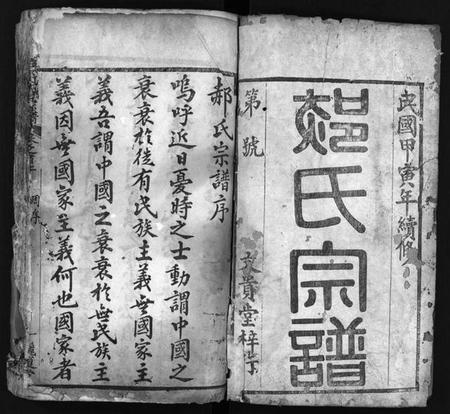 民國甲寅年續修
郝氏宗譜
第 號
文賁堂梓
郝氏宗譜序
嗚呼近日憂時之士動謂中國之
衰衰於徒有民族主義無國家主
義吾謂中國之衰衰於無民族主
義因無國家主義何也國家者